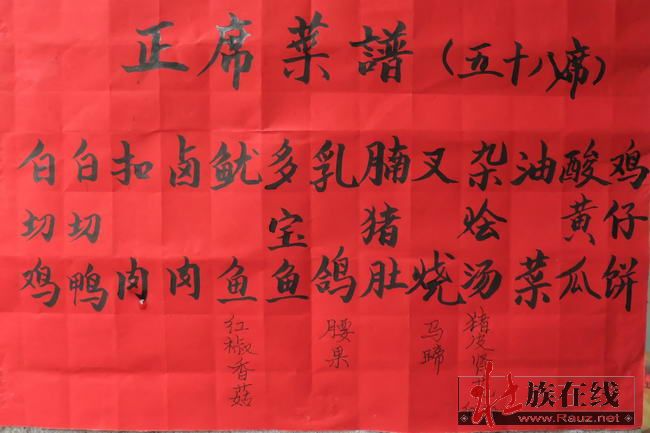 正席菜譜（五十八席）
白切鸡
白切鸭
扣肉
卤肉
鱿鱼
红椒香菇
多宝鱼
乳鸽
腰果
腩猪肚
叉烧
马蹄
杂烩汤
猪皮肾
油菜
酸黄瓜
鸡仔饼
壮族在线
www.Rauz.net